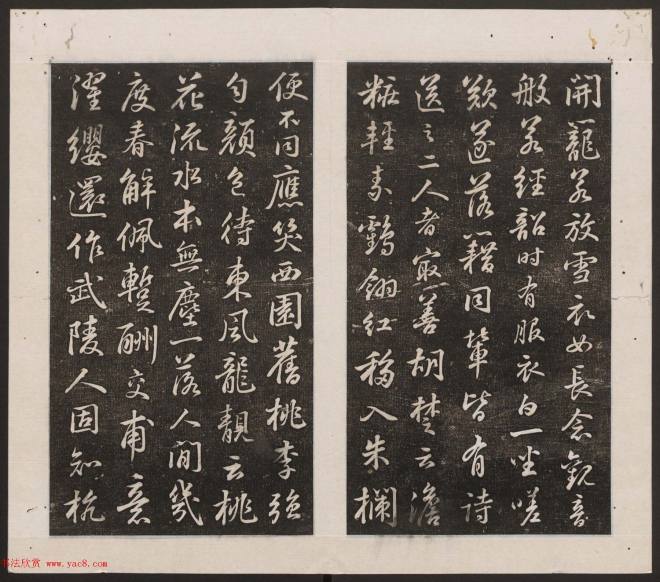 開籠若放雪衣女長念觀音
般若經韶時有服衣白一坐嗟
歎遂落籍同輩皆有詩
送之二人者最善胡楚云澹
粧輕素鶴翎紅移入朱欄
便不同應笑西園舊桃李強
勻顏色待東風龍靚云桃
花流水本無塵一落人間幾
度春解佩蹔酬交甫意
濯纓還作武陵人固知杭
书法欣赏 www.yac8.com